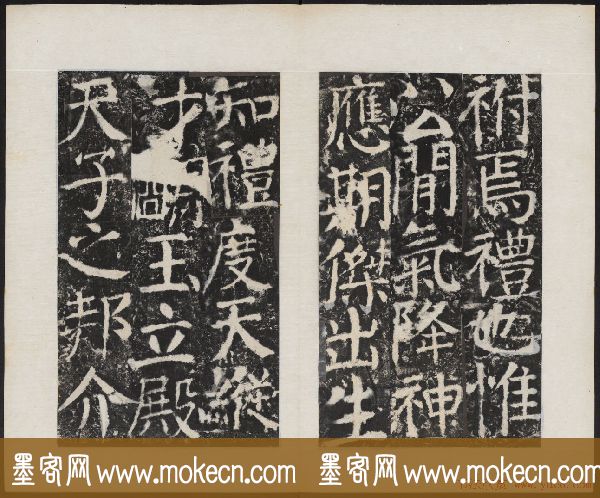 祔焉禮也惟
公間氣降神
應期傑出生
知禮度天縱
才明王立殿
天子之邦介
墨客网 www.mokecn.com 墨客网 www.mokecn.com